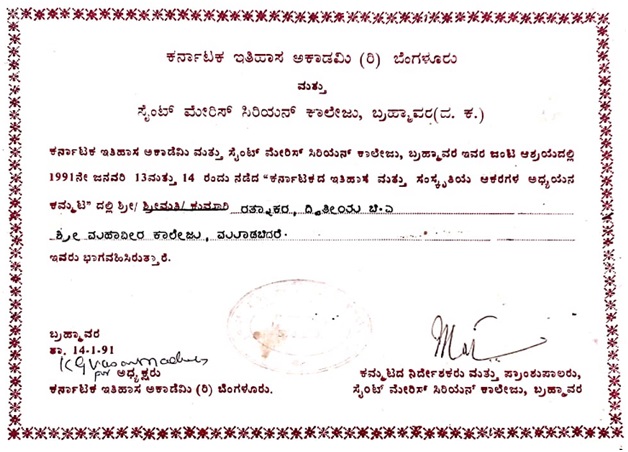 ಕರ್ನಾಟಕ ಇತಿಹಾಸ ಅಕಾಡಮಿ (ರಿ) ಬೆಂಗಳೂರು
ಮತ್ತು
ಸೈಂಟ್ ಮೇರಿಸ್ ಸಿರಿಯನ್ ಕಾಲೇಜು, ಬ್ರಹ್ಮಾವರ(ದ. ಕ.)
ಕರ್ನಾಟಕ ಇತಿಹಾಸ ಅಕಾಡೆಮಿ ಮತ್ತು ಸೈಂಟ್ ಮೇರಿಸ್ ಸಿರಿಯನ್ ಕಾಲೇಜು, ಬ್ರಹ್ಮಾವರ ಇವರ ಜಂಟಿ ಆಶ್ರಯದಲ್ಲಿ
1991ನೇ ಜನವರಿ 13ಮತ್ತು 14 ರಂದು ನಡೆದ "ಕರ್ನಾಟಕದ ಇತಿಹಾಸ ಮತ್ತು ಸಂಸ್ಕೃತಿಯ ಆಕರಗಳ ಅಧ್ಯಯನ
ಕಮ್ಮಟ" ದಲ್ಲಿ ಶ್ರೀ/ ಶ್ರೀಮತಿ/ ಕುಮಾರಿ ರತ್ನಾಕರ, ದ್ವಿತೀಯ ಬಿ.ಎ
ಶ್ರೀ ಮಹಾವೀರ ಕಾಲೇಜು, ಮೂಡಬಿದರೆ.
ಇವರು ಭಾಗವಹಿಸಿರುತ್ತಾರೆ.
ಬ್ರಹ್ಮಾವರ
ತಾ. 14-1-91
for ಅಧ್ಯಕ್ಷರು
ಕರ್ನಾಟಕ ಇತಿಹಾಸ ಅಕಾಡೆಮಿ (ರಿ) ಬೆಂಗಳೂರು.
ಕಮ್ಮಟದ ನಿರ್ದೇಶಕರು ಮತ್ತು ಪ್ರಾಂಶುಪಾಲರು,
ಸೈಂಟ್ ಮೇರಿಸ್ ಸಿರಿಯನ್ ಕಾಲೇಜು, ಬ್ರಹ್ಮಾವರ